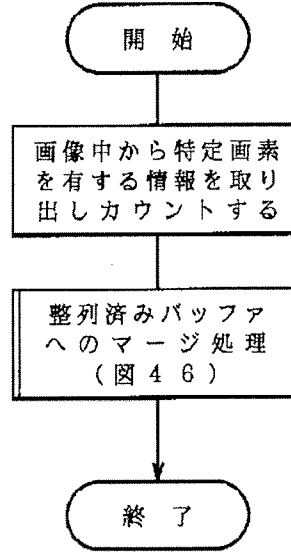 開始
画像中から特定画素
を有する情報を取り
出しカウントする
整列済みバッファ
へのマージ処理
(図46)
終了